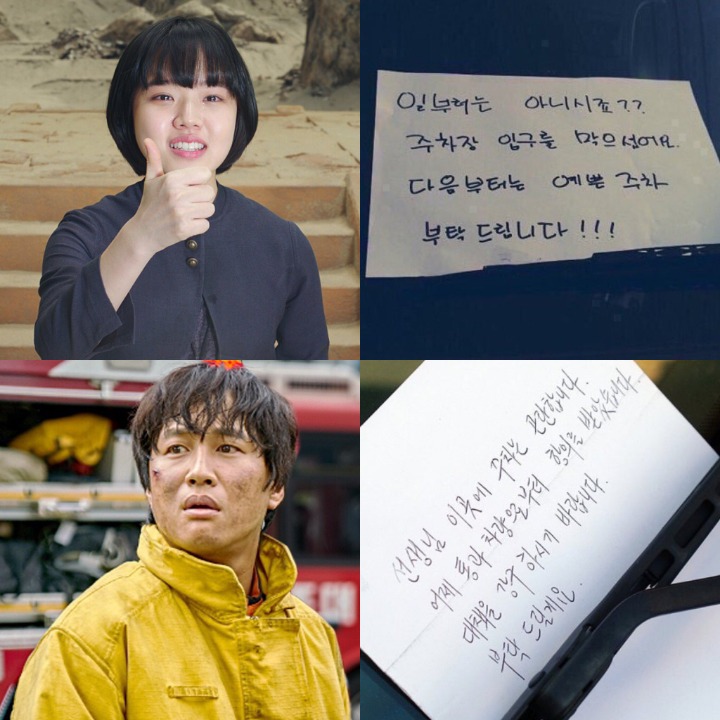 일부러는 아니시죠??
주차장 입구를 막으셨어요.
다음부터는 예쁜 주차
부탁드립니다!!!
선생님 이곳에 주차는 곤란합니다.
어제 통과 차량으로부터 항의를 받았습니다.
대책을 강구 하시기 바랍니다.
부탁드릴게요.